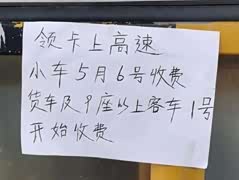 领卡上高速
小车5月6号收费
货车及9座以上客车1号
开始收费